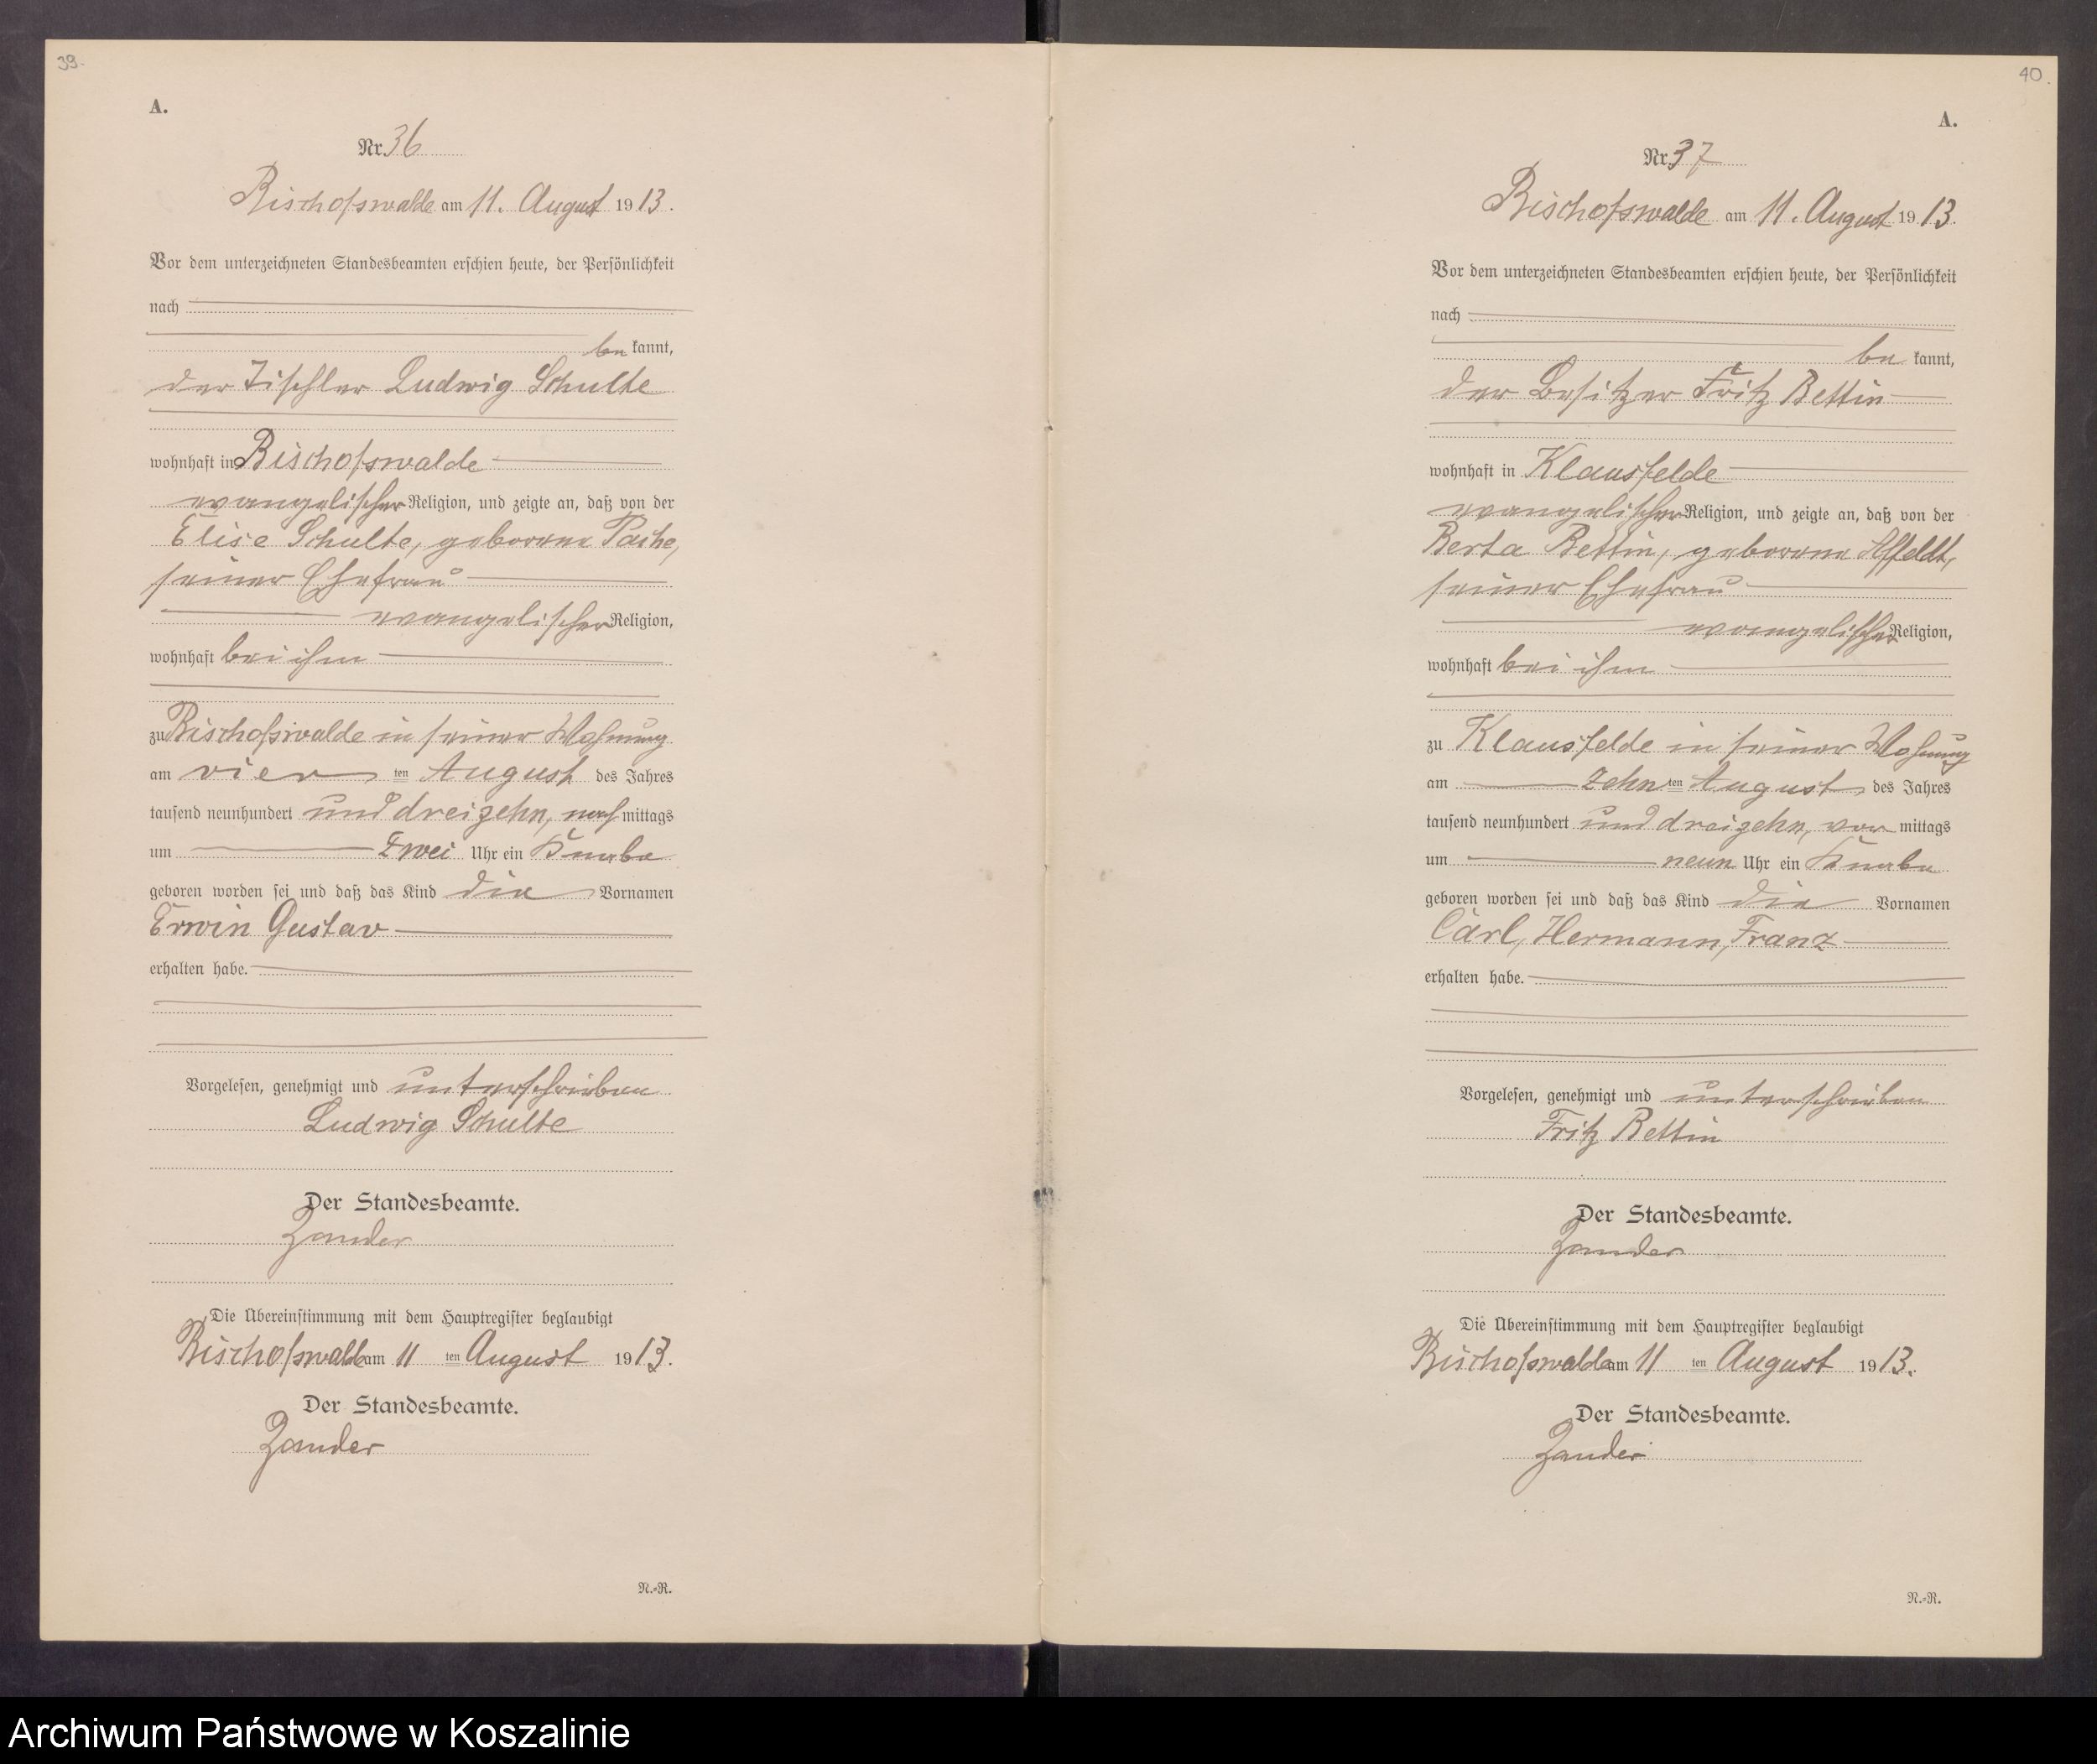 39.
A.
Nr. 36
Bischofswalde am 11. August 1913.
Vor dem unterzeichneten Standesbeamten erschien heute, der Persönlichkeit
nach
be kannt,
der Tischler Ludwig Schulte
wohnhaft in Bischofswalde
evangelischer Religion, und zeigte an, daß von der
Elise Schulte, geborene Pache,
seiner Ehefrau
evangelischer Religion,
wohnhaft bei ihm
zu Bischofswalde in seiner Wohnung
am vier ten August des Jahres
tausend neunhundert und dreizehn, nach mittags
um Zwei Uhr ein Knabe
geboren worden sei und daß das Kind die Vornamen
Erwin Gustav
erhalten habe.
Vorgelesen, genehmigt und unterschrieben
Ludwig Schulte
Der Standesbeamte.
Zander
Die Übereinstimmung mit dem Hauptregister beglaubigt
Bischofswalde am 11 ten August 1913.
Der Standesbeamte.
Zander
N.-R.
40.
A.
Nr. 37
Bischofswalde am 11. August 1913.
Vor dem unterzeichneten Standesbeamten erschien heute, der Persönlichkeit
nach
be kannt,
der Besitzer Fritz Bettin
wohnhaft in Klausfelde
evangelischer Religion, und zeigte an, daß von der
Berta Bettin, geborene Affeldt,
seiner Ehefrau
evangelischer Religion,
wohnhaft bei ihm
zu Klausfelde in seiner Wohnung
am zehn ten August des Jahres
tausend neunhundert und dreizehn, vor mittags
um neun Uhr ein Knabe
geboren worden sei und daß das Kind die Vornamen
Carl, Hermann, Franz
erhalten habe.
Vorgelesen, genehmigt und unterschrieben
Fritz Bettin
Der Standesbeamte.
Zander
Die Übereinstimmung mit dem Hauptregister beglaubigt
Bischofswalde am 11 ten August 1913.
Der Standesbeamte.
Zander
N.-R.
Archiwum Państwowe w Koszalinie